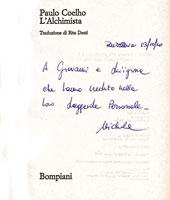 Paulo Coelho
L'Alchimista
Traduzione di Rita Desti
A Giovanni e
che hanno creduto nella
loro Leggenda Personale
Michele
Bompiani